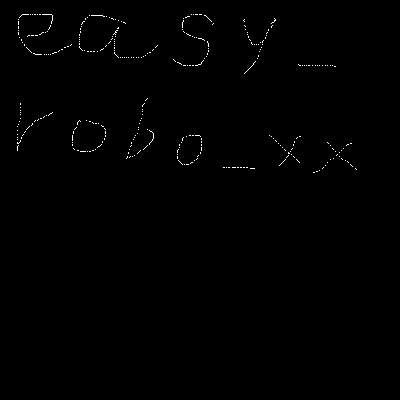 easy_
robo_xx